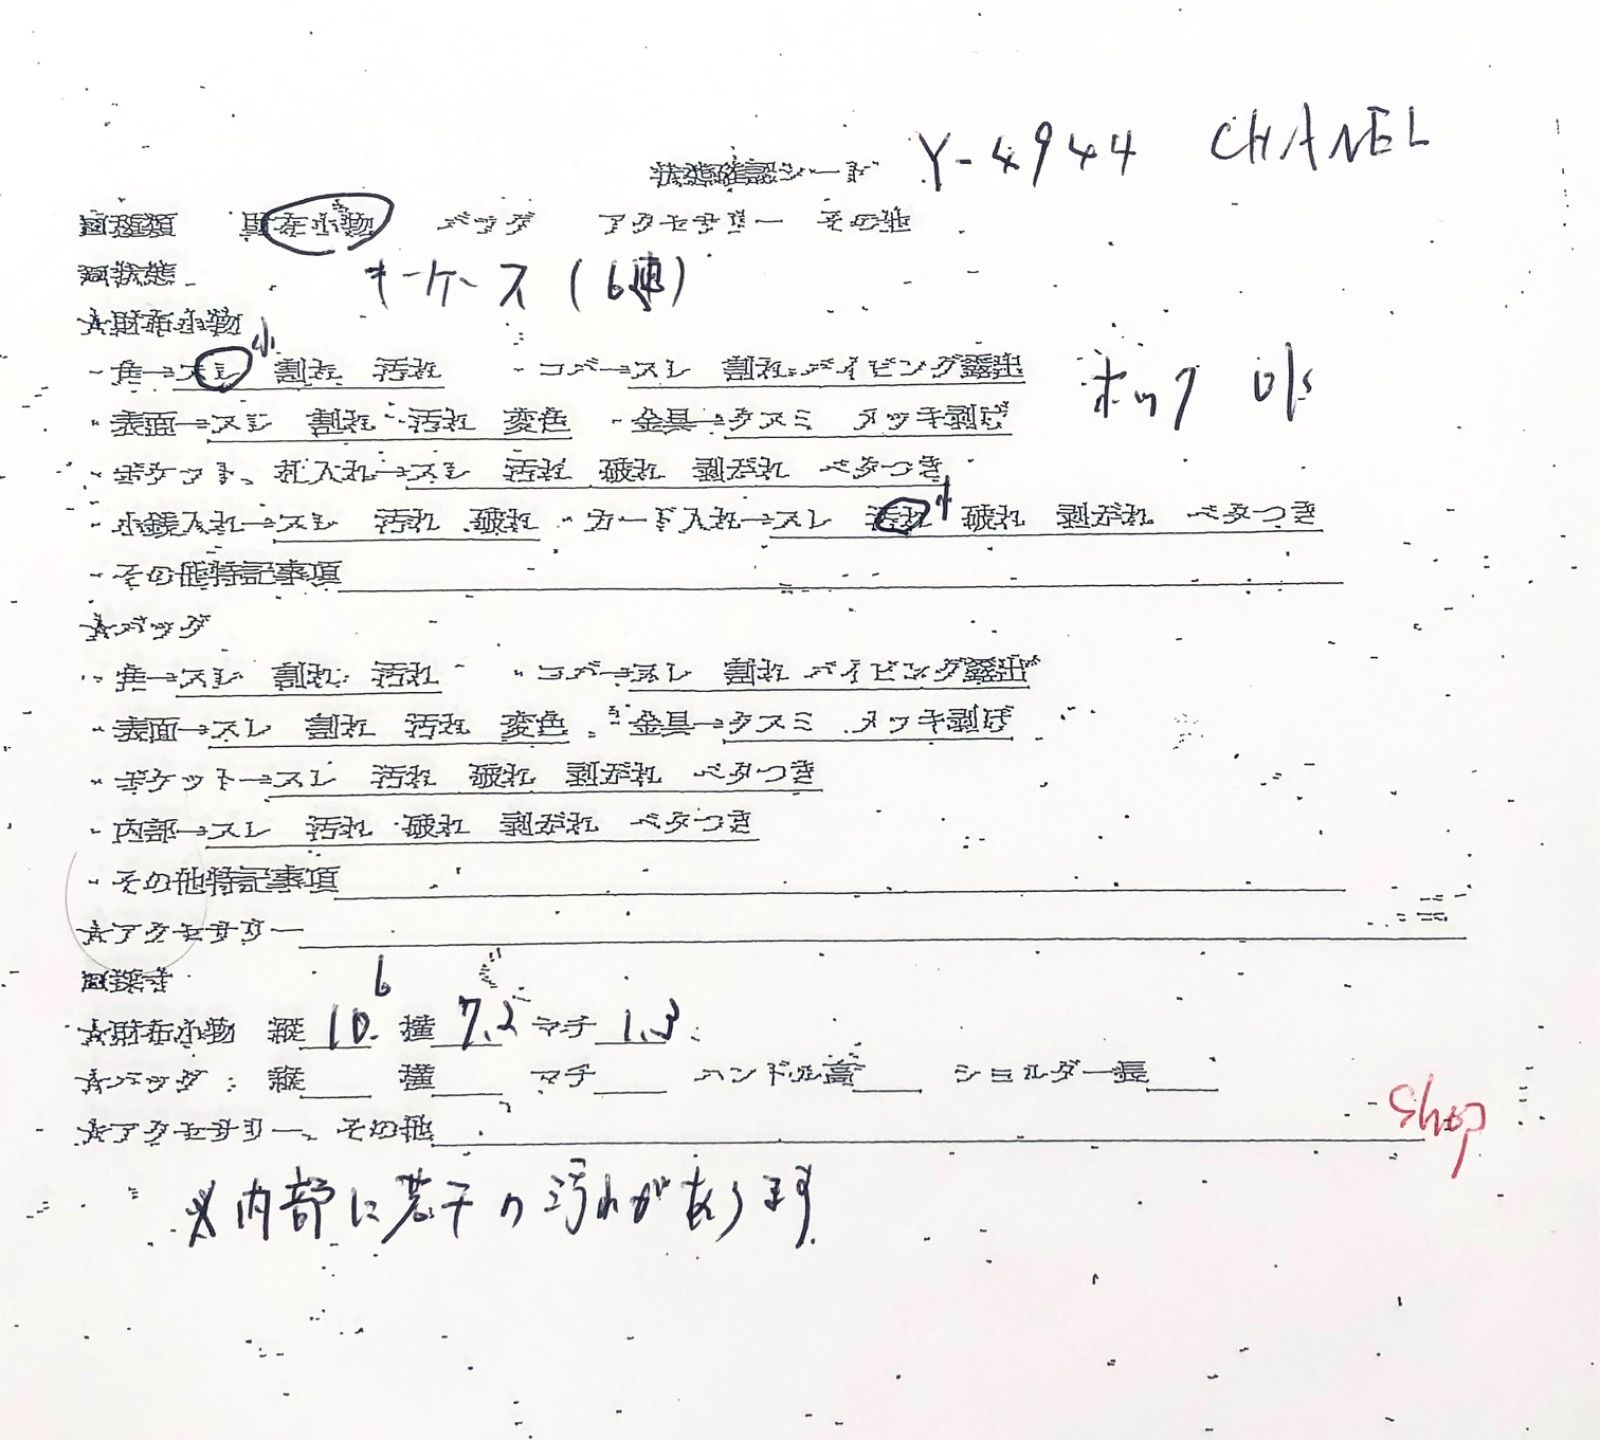 状態確認シート Y-4944 CHANEL
□種類 財布小物 バッグ アクセサリー その他
□状態 キーケース (6連)
☆財布小物
・角→スレ 小 割れ 汚れ ・コバ→スレ 割れ パイピング露出 ホック
・表面→スレ 割れ 汚れ 変色 ・金具→クスミ メッキ剥げ
・ポケット、札入れ→スレ 汚れ 破れ 剥がれ ベタつき
・小銭入れ→スレ 汚れ 破れ ・カード入れ→スレ 汚れ 小 破れ 剥がれ ベタつき
・その他特記事項
☆バッグ
・角→スレ 割れ 汚れ ・コバ→スレ 割れ パイピング露出
・表面→スレ 割れ 汚れ 変色 ・金具→クスミ メッキ剥げ
・ポケット→スレ 汚れ 破れ 剥がれ ベタつき
・内部→スレ 汚れ 破れ 剥がれ ベタつき
・その他特記事項
☆アクセサリー
□採寸
☆財布小物 縦 10.6 横 7.2 マチ 1.3
☆バッグ 縦 横 マチ ハンドル高 ショルダー長
☆アクセサリー、その他 Shop
※内部に若干の汚れがあります